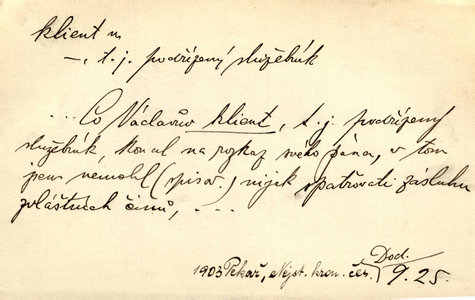 klient m.
—, t. j. podřízený služebník
... Co Václavův klient, t. j. podřízený
služebník, konal na rozkaz svého pána, v tom
jsem nemohl (spisov.) nijak spatřovati zásluhu
zvláštních činů, ...
1903 Pekař, Nejst. kron. čes. Dod. 9. 25.